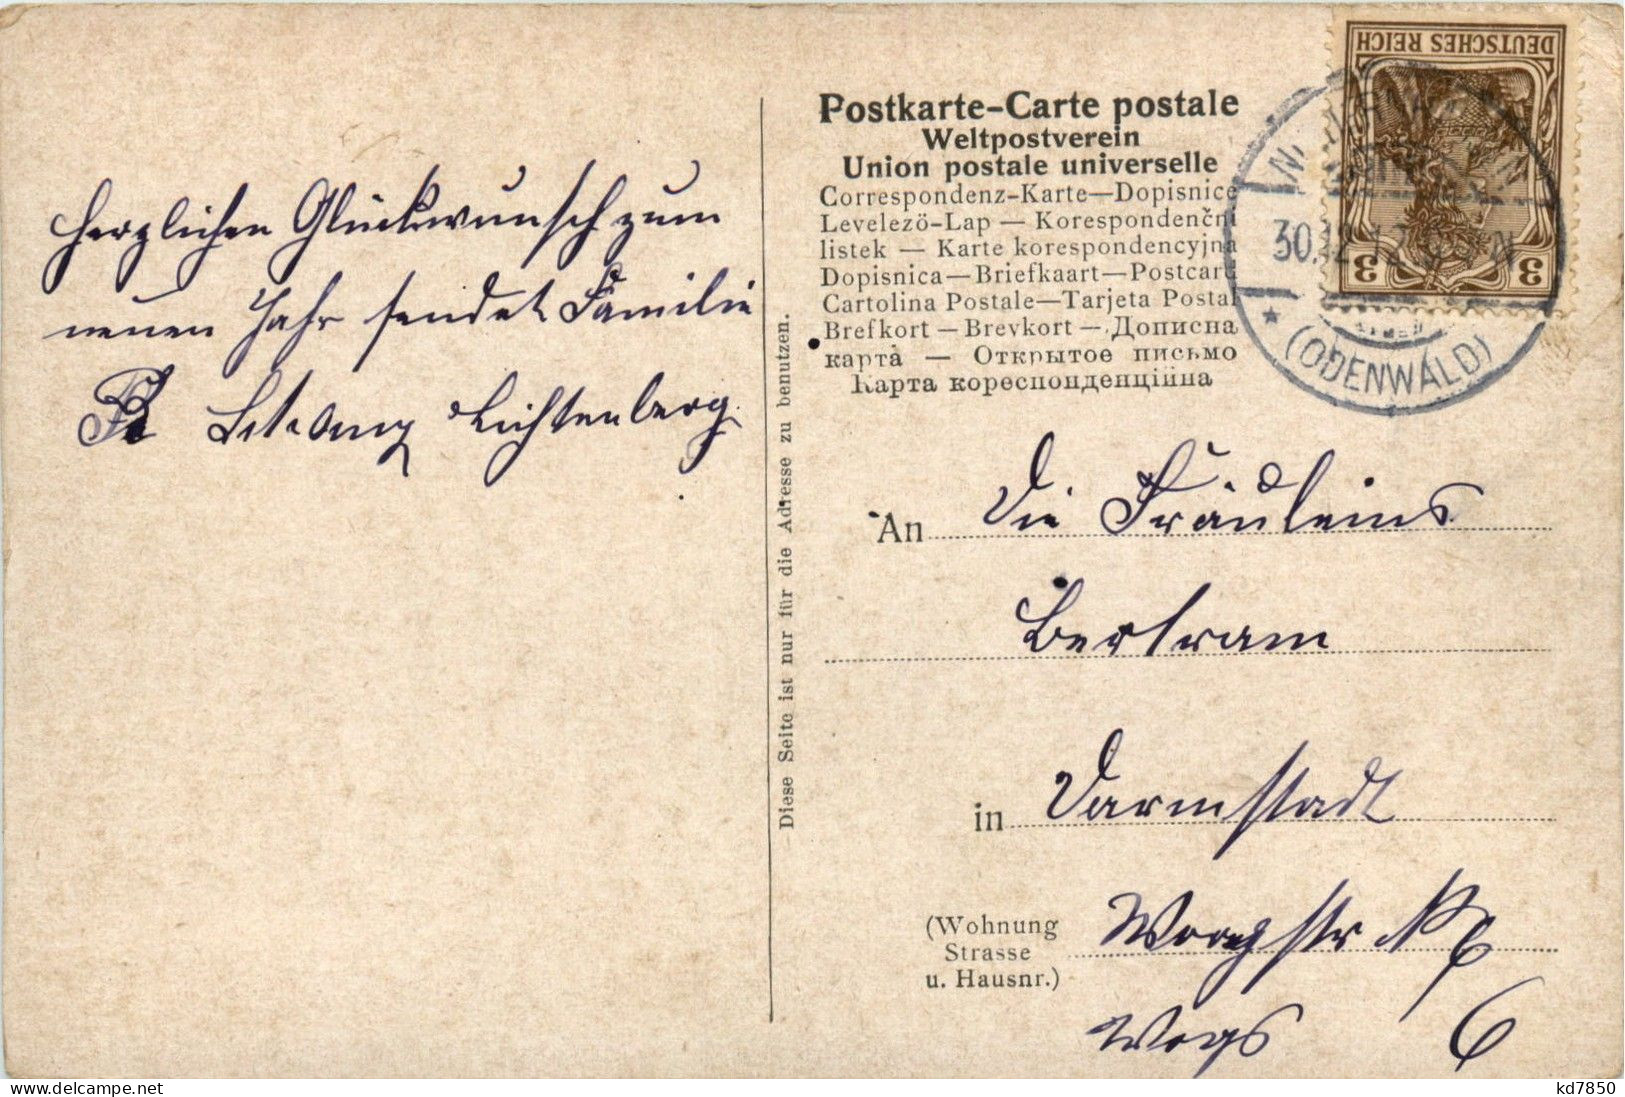 Herzlichen Glückwunsch zum
neuen Jahr sendet Familie
Lichtenberg
Diese Seite ist nur für die Adresse zu benutzen.
Postkarte-Carte postale
Weltpostverein
Union postale universelle
Correspondenz-Karte—Dopisnice
Levelezö-Lap — Korespondenční
listek — Karte korespondencyjna
Dopisnica—Briefkaart—Postcard
Cartolina Postale—Tarjeta Postal
Brefkort — Brevkort — Дописна
карта — Открытое письмо
Карта кореспонденційна
DEUTSCHES REICH
3 3
30.12.12
(ODENWALD)
An Die Fräuleins
Bertram
in Darmstadt
(Wohnung
Strasse
u. Hausnr.)
6
Woogs 6
kd7850